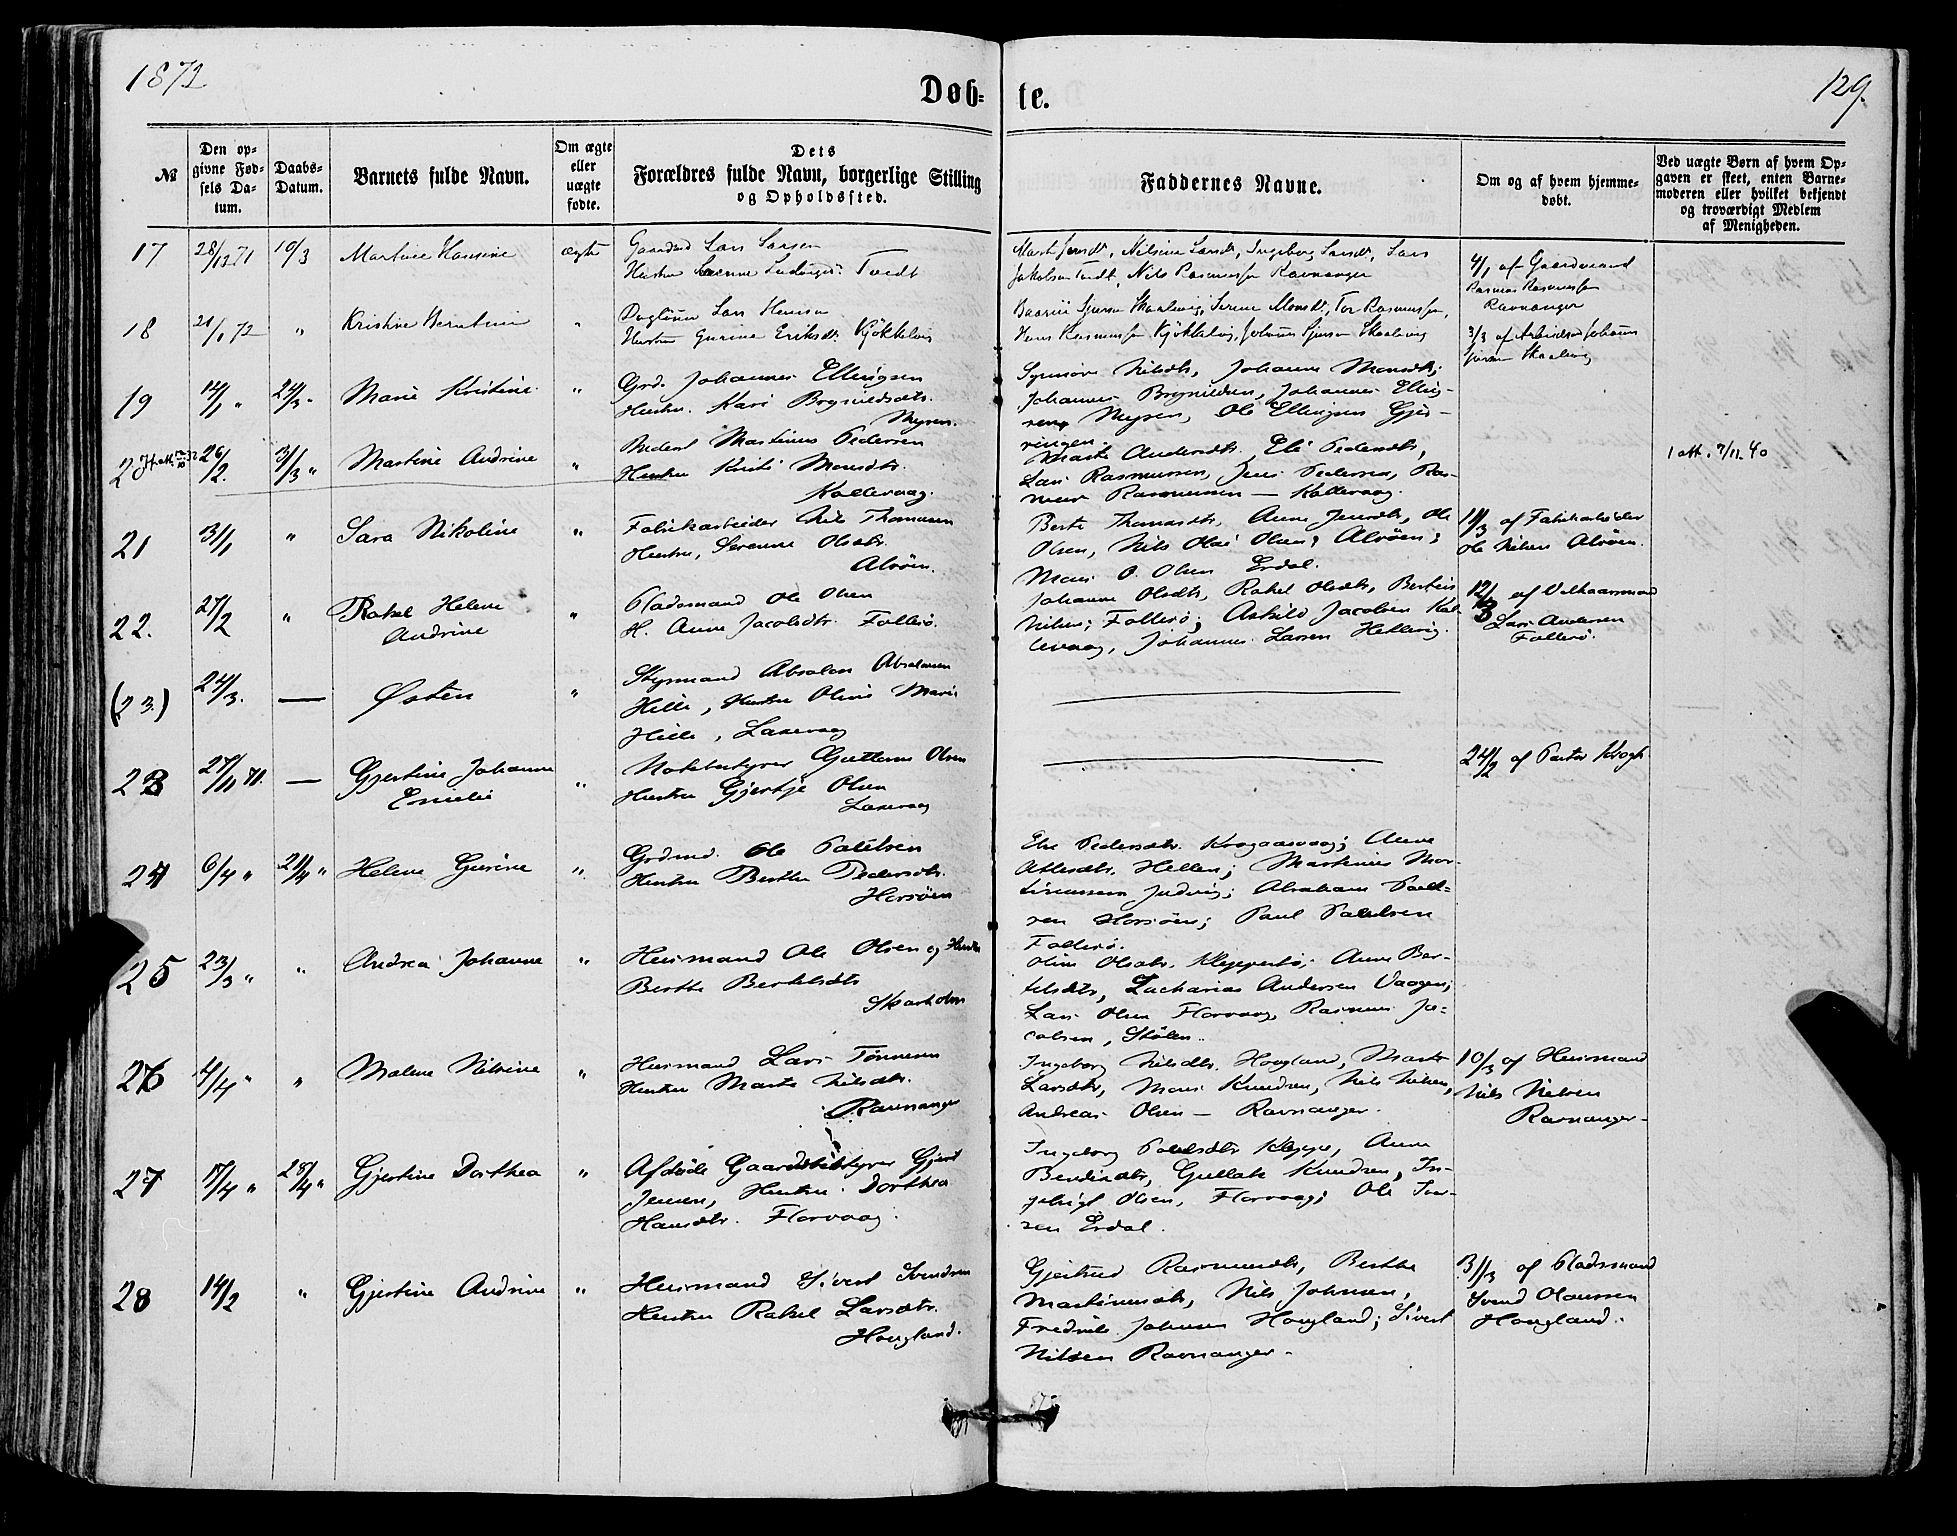 1872
Døb=
te.
129.
№
Den op-
givne Fød-
sels Da-
tum.
Daabs-
Datum.
Barnets fulde Navn.
Om ægte
eller
uægte
fødte.
Dets
Forældres fulde Navn, borgerlige Stilling
og Opholdssted.
Faddernes Navne.
Om og af hvem hjemme-
døbt.
Ved uægte Børn af hvem Op-
gaven er skeet, enten Barne-
moderen eller hvilket bekjendt
og troværdigt Medlem
af Menigheden.
17 28/12 71 10/3 Martine Hansine ægte
Gaardmd Lars Larsen
Hustru Tvedt
Nilsine Larsdt, Ingeborg Larsdt, Lars
Jakobsen Tvedt, Nils Rasmussen Ravnanger
4/1 af Gaardmand
Rasmus Rasmussen
Ravnanger
18 21/1 72 " Kristine Berntine "
Lars Hansen
Hustru Gurine Eriksdt. Kjøkkelvig
Skaalevig, Serine Monsdt, Tor Rasmussen,
Hans Rasmussen Kjøkkelvig, Johannes Skaalevig
3/3 af Johannes
Skaalevig
19 14/1 " 24/3 " Marie Kristine "
Grd. Johannes Ellingsen
Hustru Kari Brynildsdtr.
Myren.
Synnøve Nilsdtr, Johanne Monsdtr,
Johannes Brynildsen, Johannes Elling-
sen, Myren, Ole Ellingsen Gjer-
ringen.
2 26/2. 31/3 " Martine Andrine "
Martinus Pedersen
Hustru Kristi Monsdtr.
Kollevaag.
Marte Andersdtr, Eli Pedersdtr,
Lars Rasmussen, Jens Pedersen, Ras-
mus Rasmussen — Kollevaag.
1 att. 7/11.40
21 31/1 " Sara Nikoline "
Fabrikarbeider Nils Thomasen
Hustru, Serenne Olsdtr.
Alvøen.
Berte Thomasdtr, Anne Jensdtr, Ole
Olsen, Nils Olai Olsen, Alvøen;
Mons O. Olsen Erdal.
11/3 af Fabrikarbeider
Ole Nilsen Alvøen.
22. 27/2 " Rakel Helene
Andrine "
Pladsmand Ole Olsen
H. Anne Jacobsdtr. Follesø.
Johanne Olsdtr, Rakel Olsdtr, Bertin
Nilsen, Follesø, Askild Jacobsen Kol-
levaag, Johannes Larsen Hetlevig.
12/3 af Vilkaarsmand
Lars Andersen
Follesø.
(23.) 24/3. — Østen "
Styrmand Absalon Absalonsen
Hille, Hustru Oline Marie
Hille, Laxevaag
23 27/11 71. — Gjertine Johanne
Emilie "
Notebestyrer Guttorm Olsen
Hustru Gjertje Olsen
Laxevaag
24/2 af Pastor Krogh
24 6/4 " 21/4 " Helene Gurine "
Grdmd. Ole Paulsen
Hustru Berthe Pedersdtr.
Horsøen
Else Pedersdtr. Krogaasvaag; Anne
Atlesdtr. Hellen; Martinus Mor-
tinussen Juvig; Abraham Paul-
sen Horsøen; Paul Paulsen
Follesø.
25 23/3 " " Andrea Johanne "
Huusmand Ole Olsen og Hustru
Berthe Bertelsdtr
Skarholm
Oline Olsdtr, Kleppestø; Anne Ber-
telsdtr, Zacharias Andersen Vaagen,
Lars Olsen Florvaag, Rasmus Ja-
cobsen, Stølen.
26 4/4 " " Malene Nilsine "
Huusmand Lars Tønnesen
Hustru Marte Nilsdtr.
Ravnanger
Ingeborg Nilsdtr. Hougland, Marte
Larsdtr, Mons Knudsen, Nils Nilsen,
Andreas Olsen — Ravnanger.
10/3 af Huusmand
Nils Nilsen
Ravnanger
27 17/4 " 28/4 " Gjertine Dorthea "
Afdøde Gaardbestyrer Gjert
Jensen, Hustru Dorthea
Hansdtr. Florvaag.
Ingeborg Paulsdtr. Kleppe, Anne
Bendixdtr, Gullak Knudsen, In-
gebrigt Olsen, Florvaag; Ole Iver-
sen Erdal.
28 14/2 " Gjertine Andrine "
Huusmand Sivert Svendsen
Hustru Rakel Larsdtr.
Hougland.
Gjertrud Rasmusdtr, Berthe
Martinusdtr, Nils Johnsen,
Fredrik Johnsen Hougland; Sivert
Nilsen Ravnanger.
13/3 af Pladsmand
Svend Olaussen
Hougland.